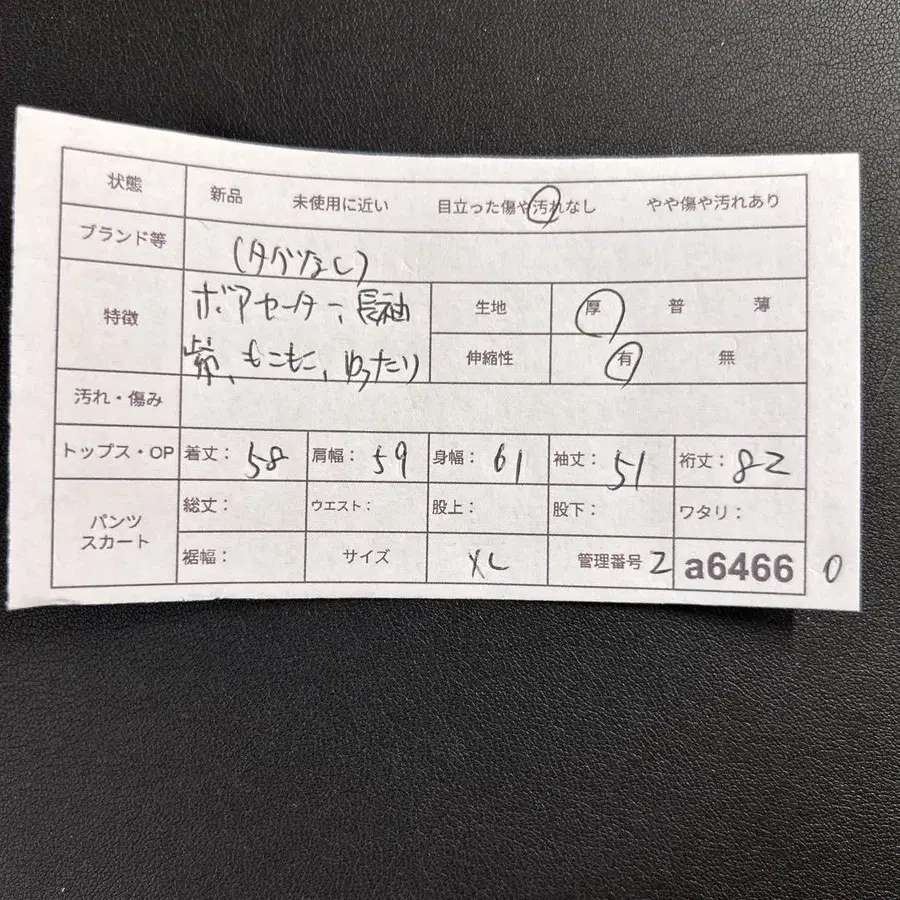 状態 新品 未使用に近い 目立った傷や汚れなし やや傷や汚れあり
ブランド等 (タグなし)
特徴 ボアセーター、長袖 生地 厚 普 薄
紫、もこもこ、ゆったり 伸縮性 有 無
汚れ・傷み
トップス・OP 着丈: 58 肩幅: 59 身幅: 61 袖丈: 51 裄丈: 82
パンツ スカート 総丈: ウエスト: 股上: 股下: ワタリ:
裾幅: サイズ XL 管理番号 2 a6466 0